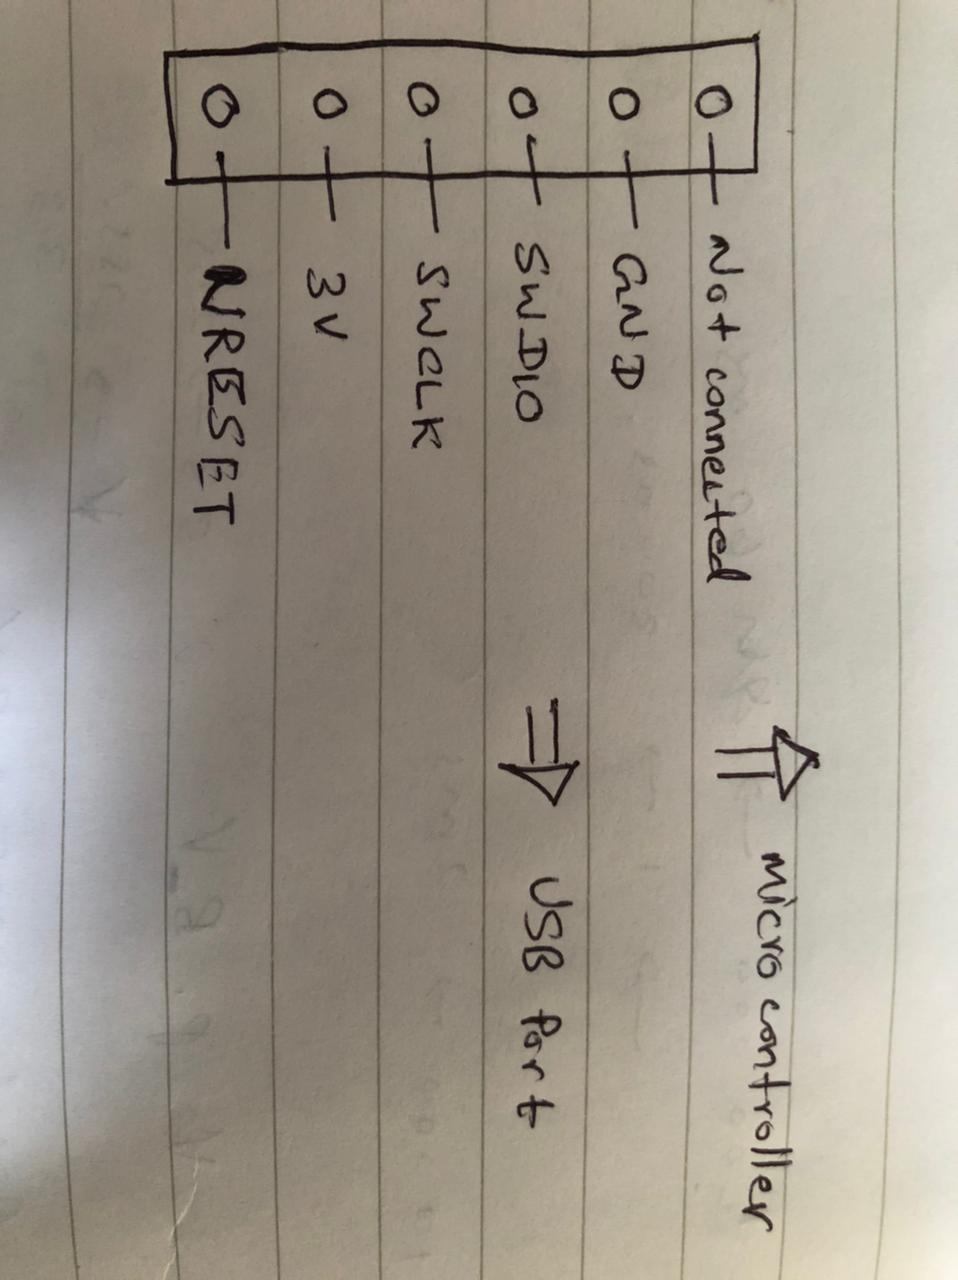 Not connected
GND
SWDIO
SWCLK
3V
NRESET
micro controller
USB Port